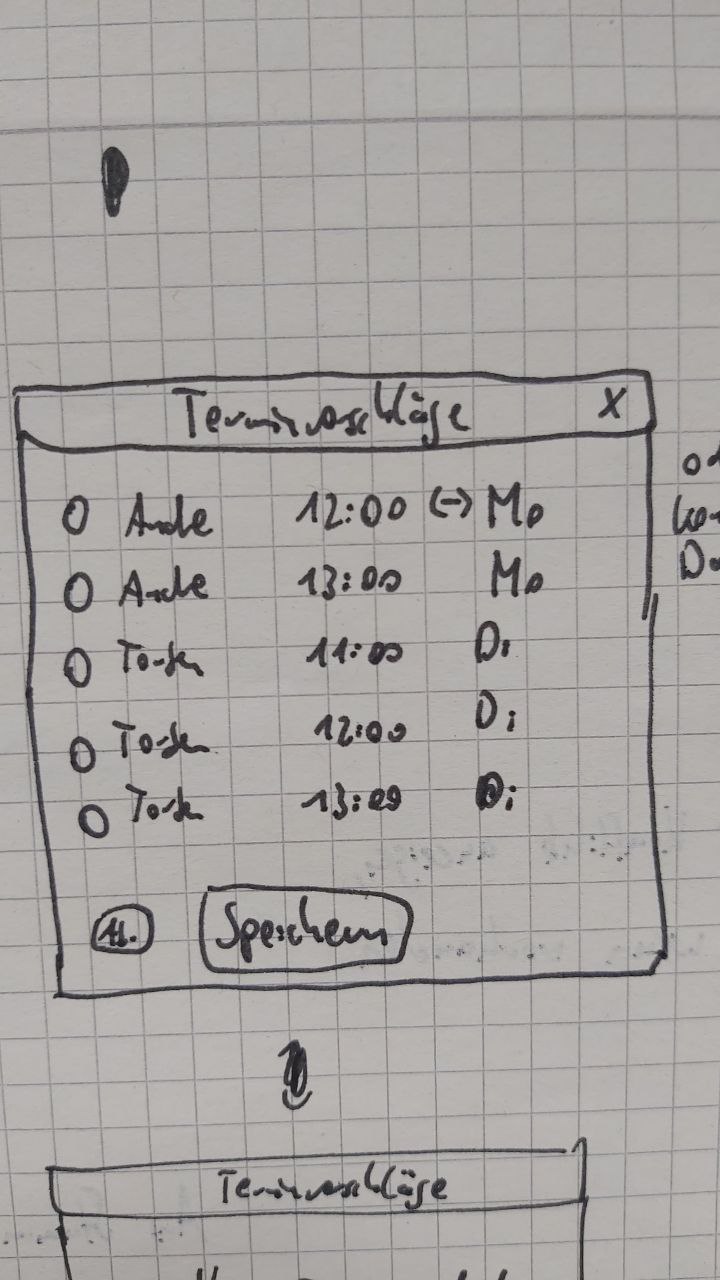 Terminvorschläge X
O Anke 12:00 (-> Mo
O Anke 13:00 Mo
O Torsten 11:00 Di
O Torsten 12:00 Di
O Torsten 13:00 Di
Speichern
Terminvorschläge